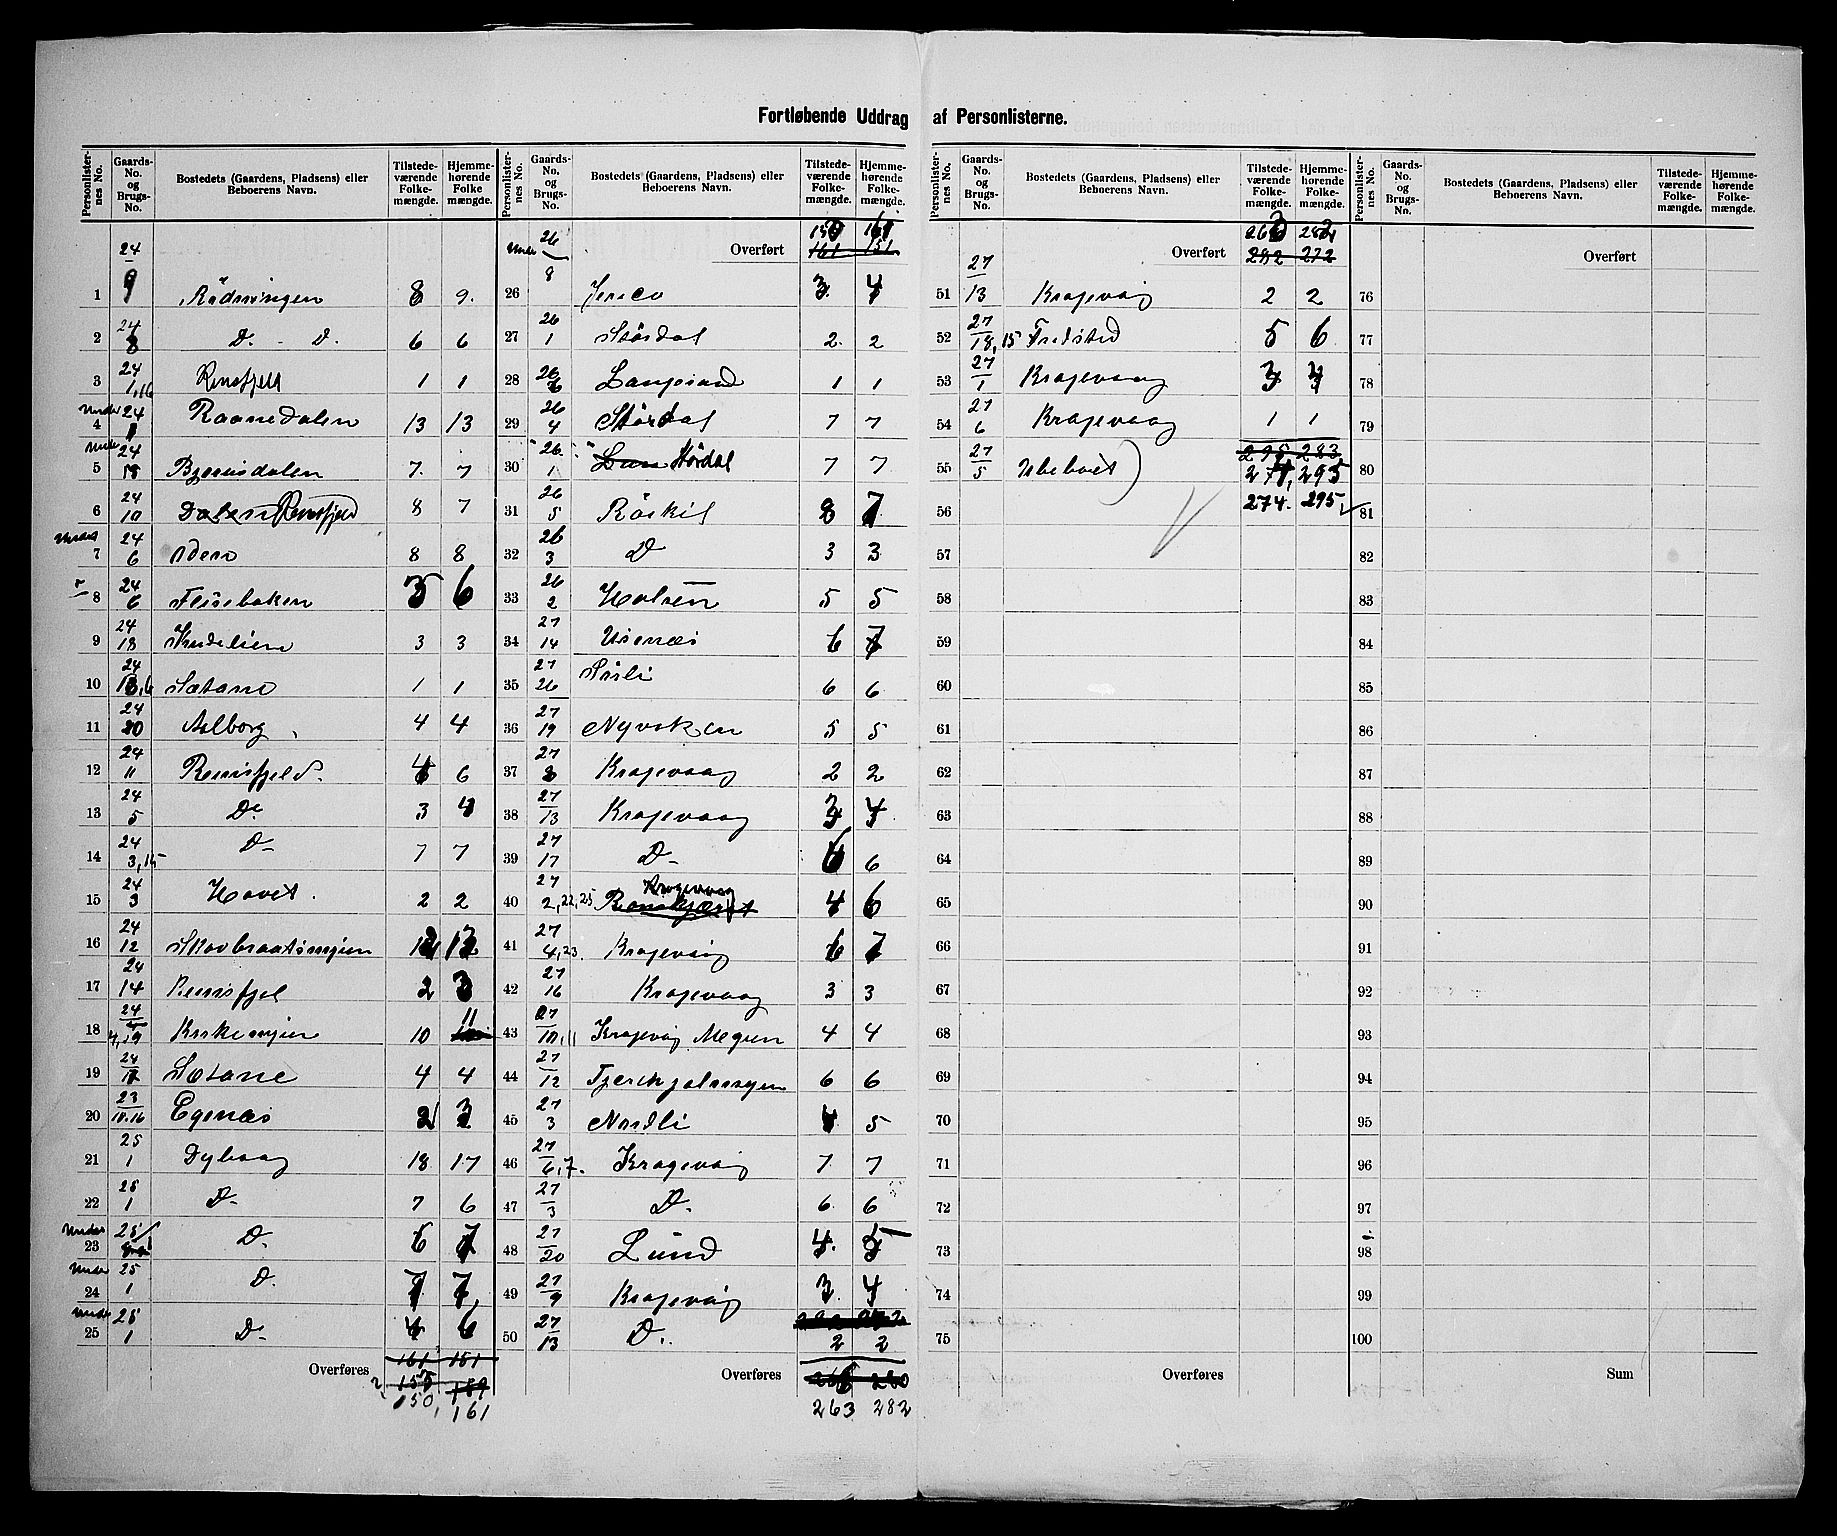 Fortløbende Uddrag af Personlisterne.
Personlister-nes No. Gaards-No. og Brugs-No. Bostedets (Gaardens, Pladsens) eller Beboerens Navn. Tilstede-værende Folke-mængde. Hjemme-hørende Folke mængde.
24
1 9 Rødmingen 8 9.
2 24/8 D. - D. 6 6
3 24/1,16 Rensfjeld 1 1
under 4 24/1 Raanedalen 13 13
under 5 24/18 Bjerrisdalen 7. 7
6 24/10 Dalen Rensfjeld 8 7
under 7 24/6 Iden 8 8
8 24/6 Flisebaken 5 6
9 24/18 Knudelien 3 3
10 24/13,6 Sætane 1 1
11 24/20 Aalborg 4 4
12 24/11 Rensfjeld. 4 6
13 24/5 Do 3 4
14 24/3,15 D- 7 7
15 24/3 Hovet. 2 2
16 24/12 Skovbraatsmyren 12 12
17 24/14 Rensfjel 2 3
18 24/4,19 Kirkemyren 10 11
19 24/17 Sætane 4 4
20 23/18.16 Egenæs 2 3
21 25/1 Dybvaag 18 17
22 25/1 D- 7 6
under 23 25 D. 6 7
under 24 25/1 D. 7 7,
under 25 25/1 D- 4 6
161 151
Overføres 155 159
150, 161
Personlister-nes No. Gaards-No. og Brugs-No. Bostedets (Gaardens, Pladsens) eller Beboerens Navn. Tilstede-værende Folke-mængde. Hjemme-hørende Folke-mængde.
150 161
under 26 Overført 161 151
26 8 Jerico 3 4
27 26/1 Stördal 2. 2
28 26/6 Langesand 1 1
29 26/4 Stördal 7 7
30 26/1 Stördal 7 7
31 26/5 Röskil 8 7
32 26/3 D 3 3
33 26/2 Holsen 5 5
34 27/14 Usenæs 6 7
35 27/26 Sørli 6 6
36 27/19 Nyvoken 5 5
37 27/8 Kragevaag 2 2
38 27/13 Kragevaag 3 4
39 27/17 D- 6 6
40 27/2,22,25 Kragevaag 4 6
41 27/4,23. Kragevåg 6 7
42 27/16 Kragevaag 3 3
43 27/10,11 Kragevåg Megren 4 4
44 27/12 Tjerehjolmsyren 6 6
45 27/3 Nordli 4 5
46 27/6,7. Kragevåg 7 7
47 27/3 D. 6 6
48 27/20 Lund 4. 5
49 27/9 Kragevåg 3 4
50 27/13 D. 2 2
Overføres 280
263 282
Personlister-nes No. Gaards-No. og Brugs-No. Bostedets (Gaardens, Pladsens) eller Beboerens Navn. Tilstede-værende Folke-mængde. Hjemme-hørende Folke-mængde.
263 282
Overført 282 272
51 27/13 Kragevåg 2 2
52 27/18,15 Fredsted 5 6
53 27/1 Kragevaag 3 4
54 27/6 Kragevaag 1 1
295 283
55 27/5 Ubeboet) 274, 295
56 274. 295,
57
58
59
60
61
62
63
64
65
66
67
68
69
70
71
72
73
74
75
Overføres
Personlister-nes No. Gaards-No. og Brugs-No. Bostedets (Gaardens, Pladsens) eller Beboerens Navn. Tilstede-værende Folke-mængde. Hjemme-hørende Folke-mængde.
Overført
76
77
78
79
80
81
82
83
84
85
86
87
88
89
90
91
92
93
94
95
96
97
98
99
100
Sum